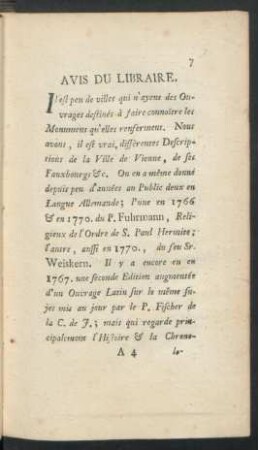 7
AVIS DU LIBRAIRE.
Il est peu de villes qui n'ayent des Ou-
vrages destinés à faire connoitre les
Monumens qu'elles renferment. Nous
avons, il est vrai, différentes Descrip-
tions de la Ville de Vienne, de ses
Fauxbourgs &c. On en a même donné
depuis peu d'années au Public deux en
Langue Allemande; l'une en 1766
& en 1770. du P. Fuhrmann, Reli-
gieux de l'Ordre de S. Paul Hermite;
l'autre, aussi en 1770., du feu Sr.
Weiskern. Il y a encore eu en
1767. une seconde Edition augmentée
d'un Ouvrage Latin sur le même su-
jet mis au jour par le P. Fischer de
la C. de J.; mais qui regarde prin-
cipalement l'Histoire & la Chrono-
A 4 lo-